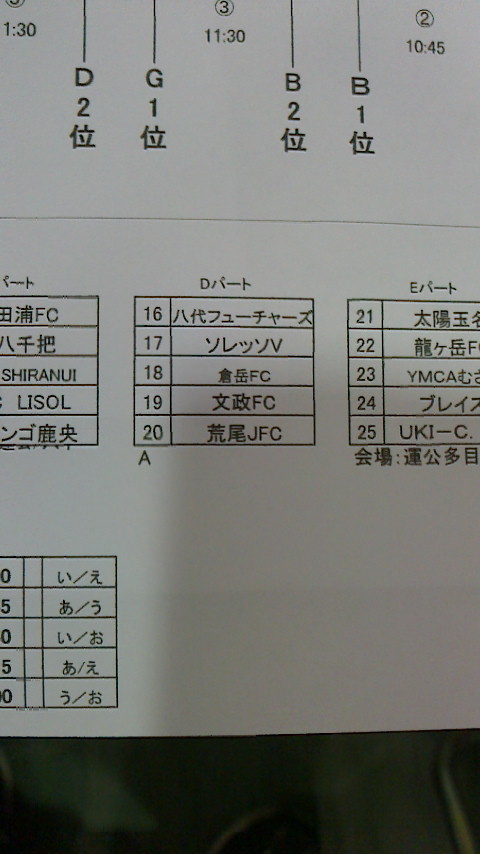 ③ ③ ②
1:30 11:30 10:45
D2位 G1位 B2位 B1位
パート
田浦FC
八千把
SHIRANUI
LISOL
ンゴ鹿央
Dパート
16 八代フューチャーズ
17 ソレッソV
18 倉岳FC
19 文政FC
20 荒尾JFC
A
Eパート
21 太陽玉名
22 龍ヶ岳FC
23 YMCAむさ
24 ブレイズ
25 UKI-C.
会場:運公多目
0 い/え
5 あ/う
0 い/お
5 あ/え
00 う/お